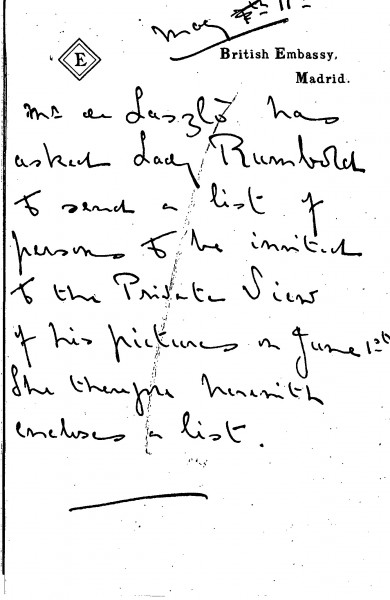 May 11th
E
British Embassy,
Madrid.
Mr de László has
asked Lady Rumbold
to send a list of
persons to be invited
to the Private View
of his pictures on June 1st
She therefore herewith
encloses a list.